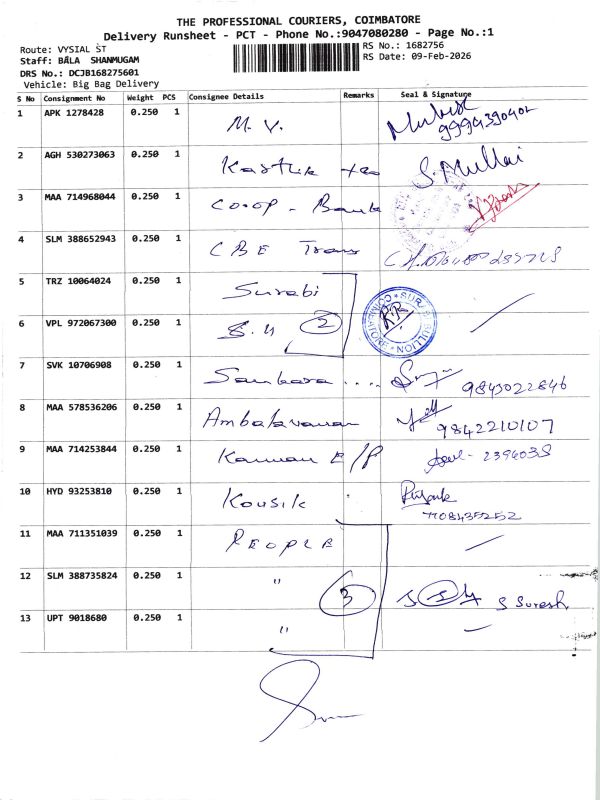 THE PROFESSIONAL COURIERS, COIMBATORE
Delivery Runsheet - PCT - Phone No.:9047080280 - Page No.:1
Route: VYSIAL ST
RS No.: 1682756
Staff: BALA SHANMUGAM
RS Date: 09-Feb-2026
DRS No.: DCJB168275601
Vehicle: Big Bag Delivery
S No Consignment No Weight PCS Consignee Details Remarks Seal & Signature
1 APK 1278428 0.250 1 M. V.
9994390402
2 AGH 530273063 0.250 1 S. Mullai
3 MAA 714968044 0.250 1 CO-OP - Bank
4 SLM 388652943 0.250 1 CBE Trans
5 TRZ 10064024 0.250 1 Surabi
SURABI BULLION COIMBATORE
6 VPL 972067300 0.250 1 S. U 2
7 SVK 10706908 0.250 1 Sankara ....
9843022846
8 MAA 578536206 0.250 1 Ambalavanan
9842210107
9 MAA 714253844 0.250 1 Kannan E/P
10 HYD 93253810 0.250 1 Kousik
7708435252
11 MAA 711351039 0.250 1 PEOPLE
12 SLM 388735824 0.250 1 " 3 S Suresh
13 UPT 9018680 0.250 1 "